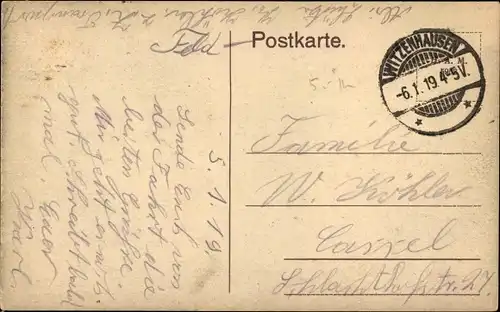 Feld - Postkarte.
WITZENHAUSEN
-6.1.19 4-5V.
5.1.19.
Sende Euch von
der Fahrt die
besten Grüße
Mir geht es
gut. Schreibt bald
mal. Euer
Karl
Familie
W. Köhler
Cassel
Schlachthofstr. 27